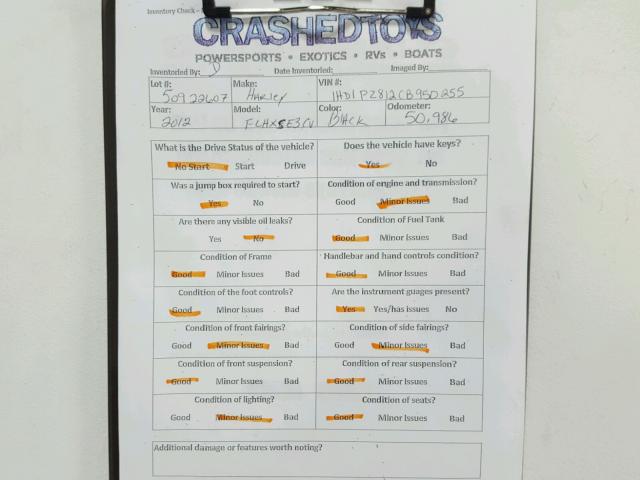 Inventory Check -
CRASHEDTOYS
POWERSPORTS • EXOTICS • RVs • BOATS
Inventoried By: D Date Inventoried: Imaged By:
Lot #: Make: VIN #:
50922607 Harley 1HD1PZ812CB950255
Year: Model: Color: Odometer:
2012 FLHXSE3CV Black 50,986
What is the Drive Status of the vehicle? Does the vehicle have keys?
No Start Start Drive Yes No
Was a jump box required to start? Condition of engine and transmission?
Yes No Good Minor Issues Bad
Are there any visible oil leaks? Condition of Fuel Tank
Yes No Good Minor Issues Bad
Condition of Frame Handlebar and hand controls condition?
Good Minor Issues Bad Good Minor Issues Bad
Condition of the foot controls? Are the instrument guages present?
Good Minor Issues Bad Yes Yes/has issues No
Condition of front fairings? Condition of side fairings?
Good Minor Issues Bad Good Minor Issues Bad
Condition of front suspension? Condition of rear suspension?
Good Minor Issues Bad Good Minor Issues Bad
Condition of lighting? Condition of seats?
Good Minor Issues Bad Good Minor Issues Bad
Additional damage or features worth noting?